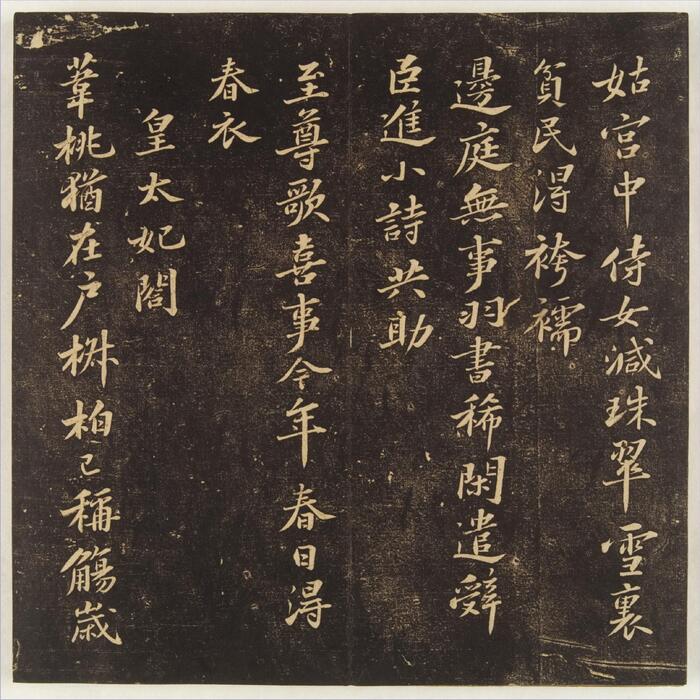 姑宮中侍女減珠翠雪裏
貧民得袴襦
邊庭無事羽書稀閑遣辭
臣進小詩共助
至尊歌喜事今年春日得
春衣
皇太妃閤
葦桃猶在户椒柏已稱觴歲